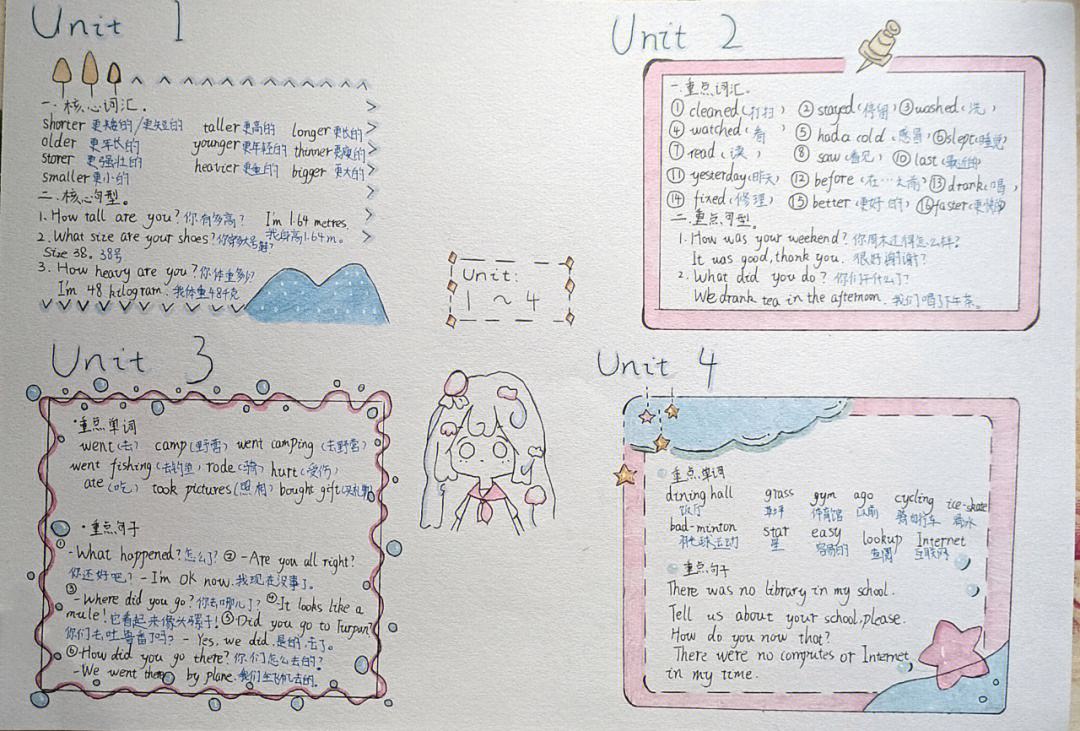 Unit 1
一.核心词汇.
shorter 更矮的/更短的 taller 更高的 longer 更长的
older 更年长的 younger 更年轻的 thinner 更瘦的
storer 更强壮的 heavier 更重的 bigger 更大的
smaller 更小的
二.核心句型.
1. How tall are you? 你有多高? I'm 1.64 metres.
我身高1.64m。
2. What size are your shoes? 你穿多大号鞋?
Size 38. 38号
3. How heavy are you? 你体重多少?
I'm 48 kilogram. 我体重48千克
Unit 2
一.重点词汇.
① cleaned (打扫) ② stayed (停留) ③ washed (洗)
④ watched (看) ⑤ had a cold (感冒) ⑥ slept (睡觉)
⑦ read (读) ⑧ saw (看见) ⑩ last (最近的)
⑪ yesterday (昨天) ⑫ before (在…之前) ⑬ drank (喝)
⑭ fixed (修理) ⑮ better (更好的) ⑯ faster (更快的)
二.重点句型.
1. How was your weekend? 你周末过得怎么样?
It was good, thank you. 很好谢谢?
2. What did you do? 你们干什么了?
We drank tea in the afternoon. 我们喝了下午茶。
Unit:
1 ~ 4
Unit 3
·重点单词
went (去) camp (野营) went camping (去野营)
went fishing (去钓鱼) rode (骑) hurt (受伤)
ate (吃) took pictures (照相) bought gift (买礼物)
·重点句子
① -What happened? 怎么了? ② -Are you all right?
你还好吧? -I'm OK now. 我现在没事了。
③ -Where did you go? 你去哪儿了? ④ It looks like a
mule! 它看起来像头骡子! ⑤ Did you go to Turpan?
你们去吐鲁番了吗? -Yes, we did. 是的,去了。
⑥ How did you go there? 你们怎么去的?
-We went there by plane. 我们坐飞机去的.
Unit 4
重点单词
dining hall grass gym ago cycling ice-skate
饭厅 草坪 体育馆 以前 骑自行车 滑冰
bad-minton star easy lookup Internet
羽毛球运动 星 容易的 查阅 互联网
重点句子
There was no library in my school.
Tell us about your school, please.
How do you now that?
There were no computes or Internet
in my time.